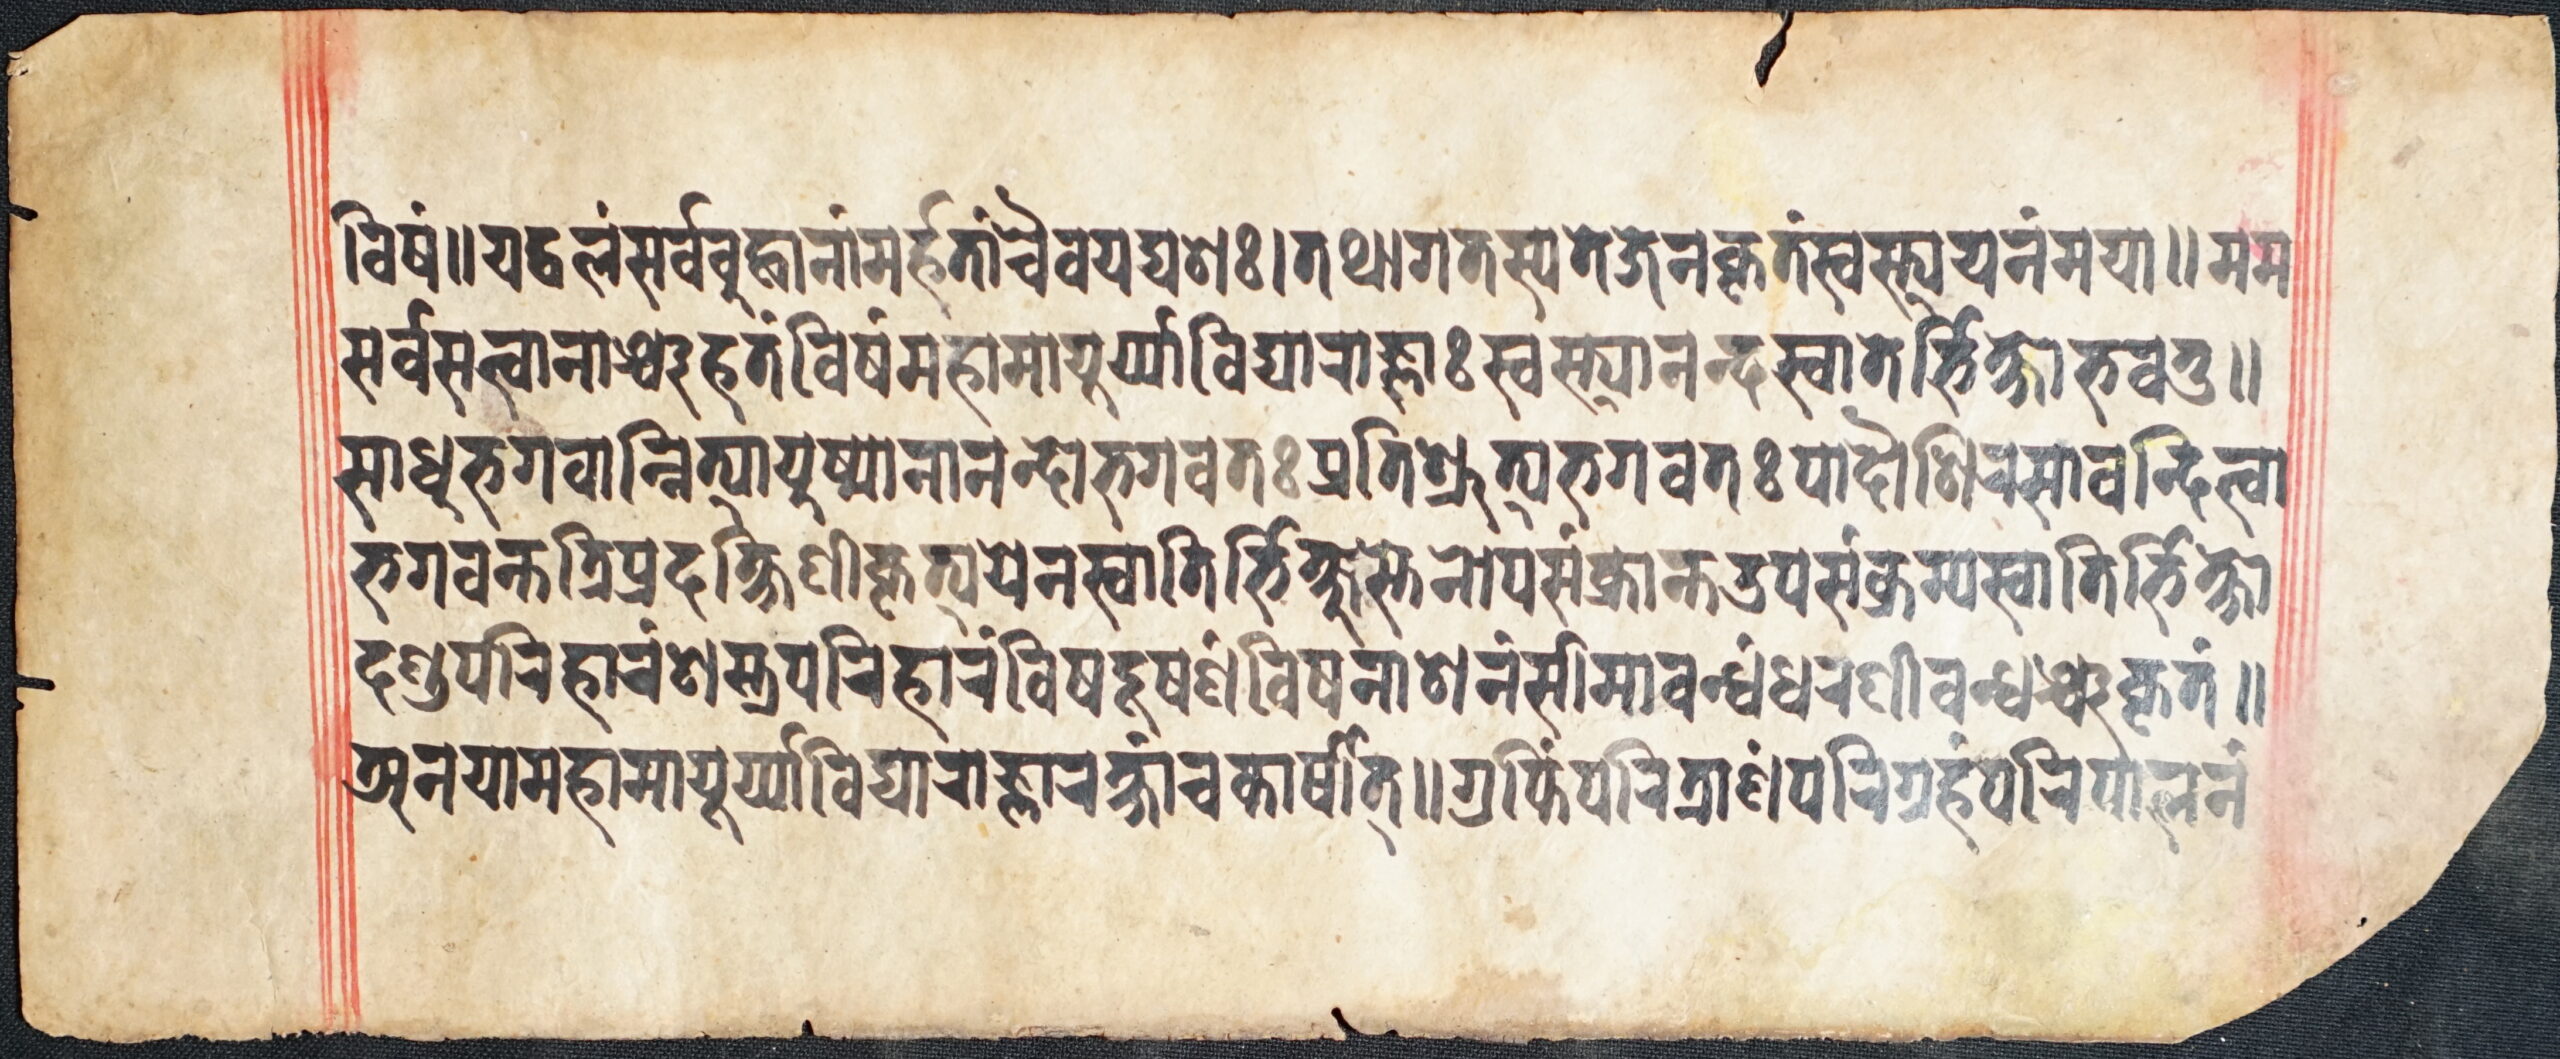 विषं॥यद्वलंसर्वबुद्धानांमर्हतांचैवयद्यशः।तथागतस्यतेजेनकृतंस्वस्त्ययनंमया॥मम
सर्वसत्वानाञ्चहतंविषंमहामायुर्य्याविद्याराज्ञाःस्वस्त्यानन्दस्वातेर्भिक्षोभवतु॥
साधुभगवान्नित्यायुष्मानानन्दोभगवतःप्रतिश्रुत्यभगवतःपादौशिरसावन्दित्वा
भगवन्तत्रिप्रदक्षिणीकृत्ययेनस्वातिर्भिक्षुस्तेनोपसंक्रान्तउपसंक्रम्यस्वातिर्भिक्षो
दण्डपरिहारंशस्त्रपरिहारंविषदूषणंविषनाशनंसीमावन्धंधरणीवन्धञ्चकृतं॥
अनयामहामायूर्य्याविद्याराज्ञारक्षांचकार्षीत्॥गुप्तिंपरित्राणंपरिग्रहंपरिपालनं